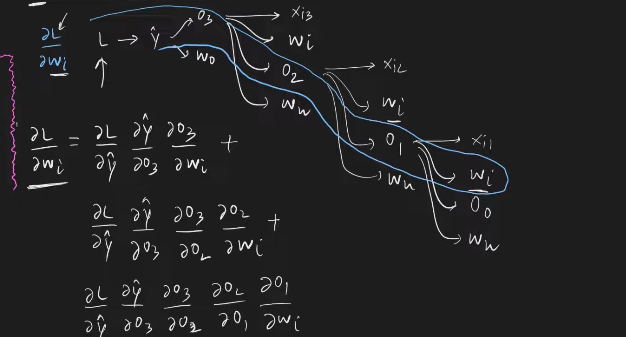 ∂L/∂wᵢ L → ŷ → o₃ → xᵢ₃
w₀ wᵢ
o₂ → xᵢ₂
w_w wᵢ
o₁ → xᵢ₁
w_w wᵢ
o₀
w_w
∂L/∂wᵢ = ∂L/∂ŷ ∂ŷ/∂o₃ ∂o₃/∂wᵢ +
∂L/∂ŷ ∂ŷ/∂o₃ ∂o₃/∂o₂ ∂o₂/∂wᵢ +
∂L/∂ŷ ∂ŷ/∂o₃ ∂o₃/∂o₂ ∂o₂/∂o₁ ∂o₁/∂wᵢ